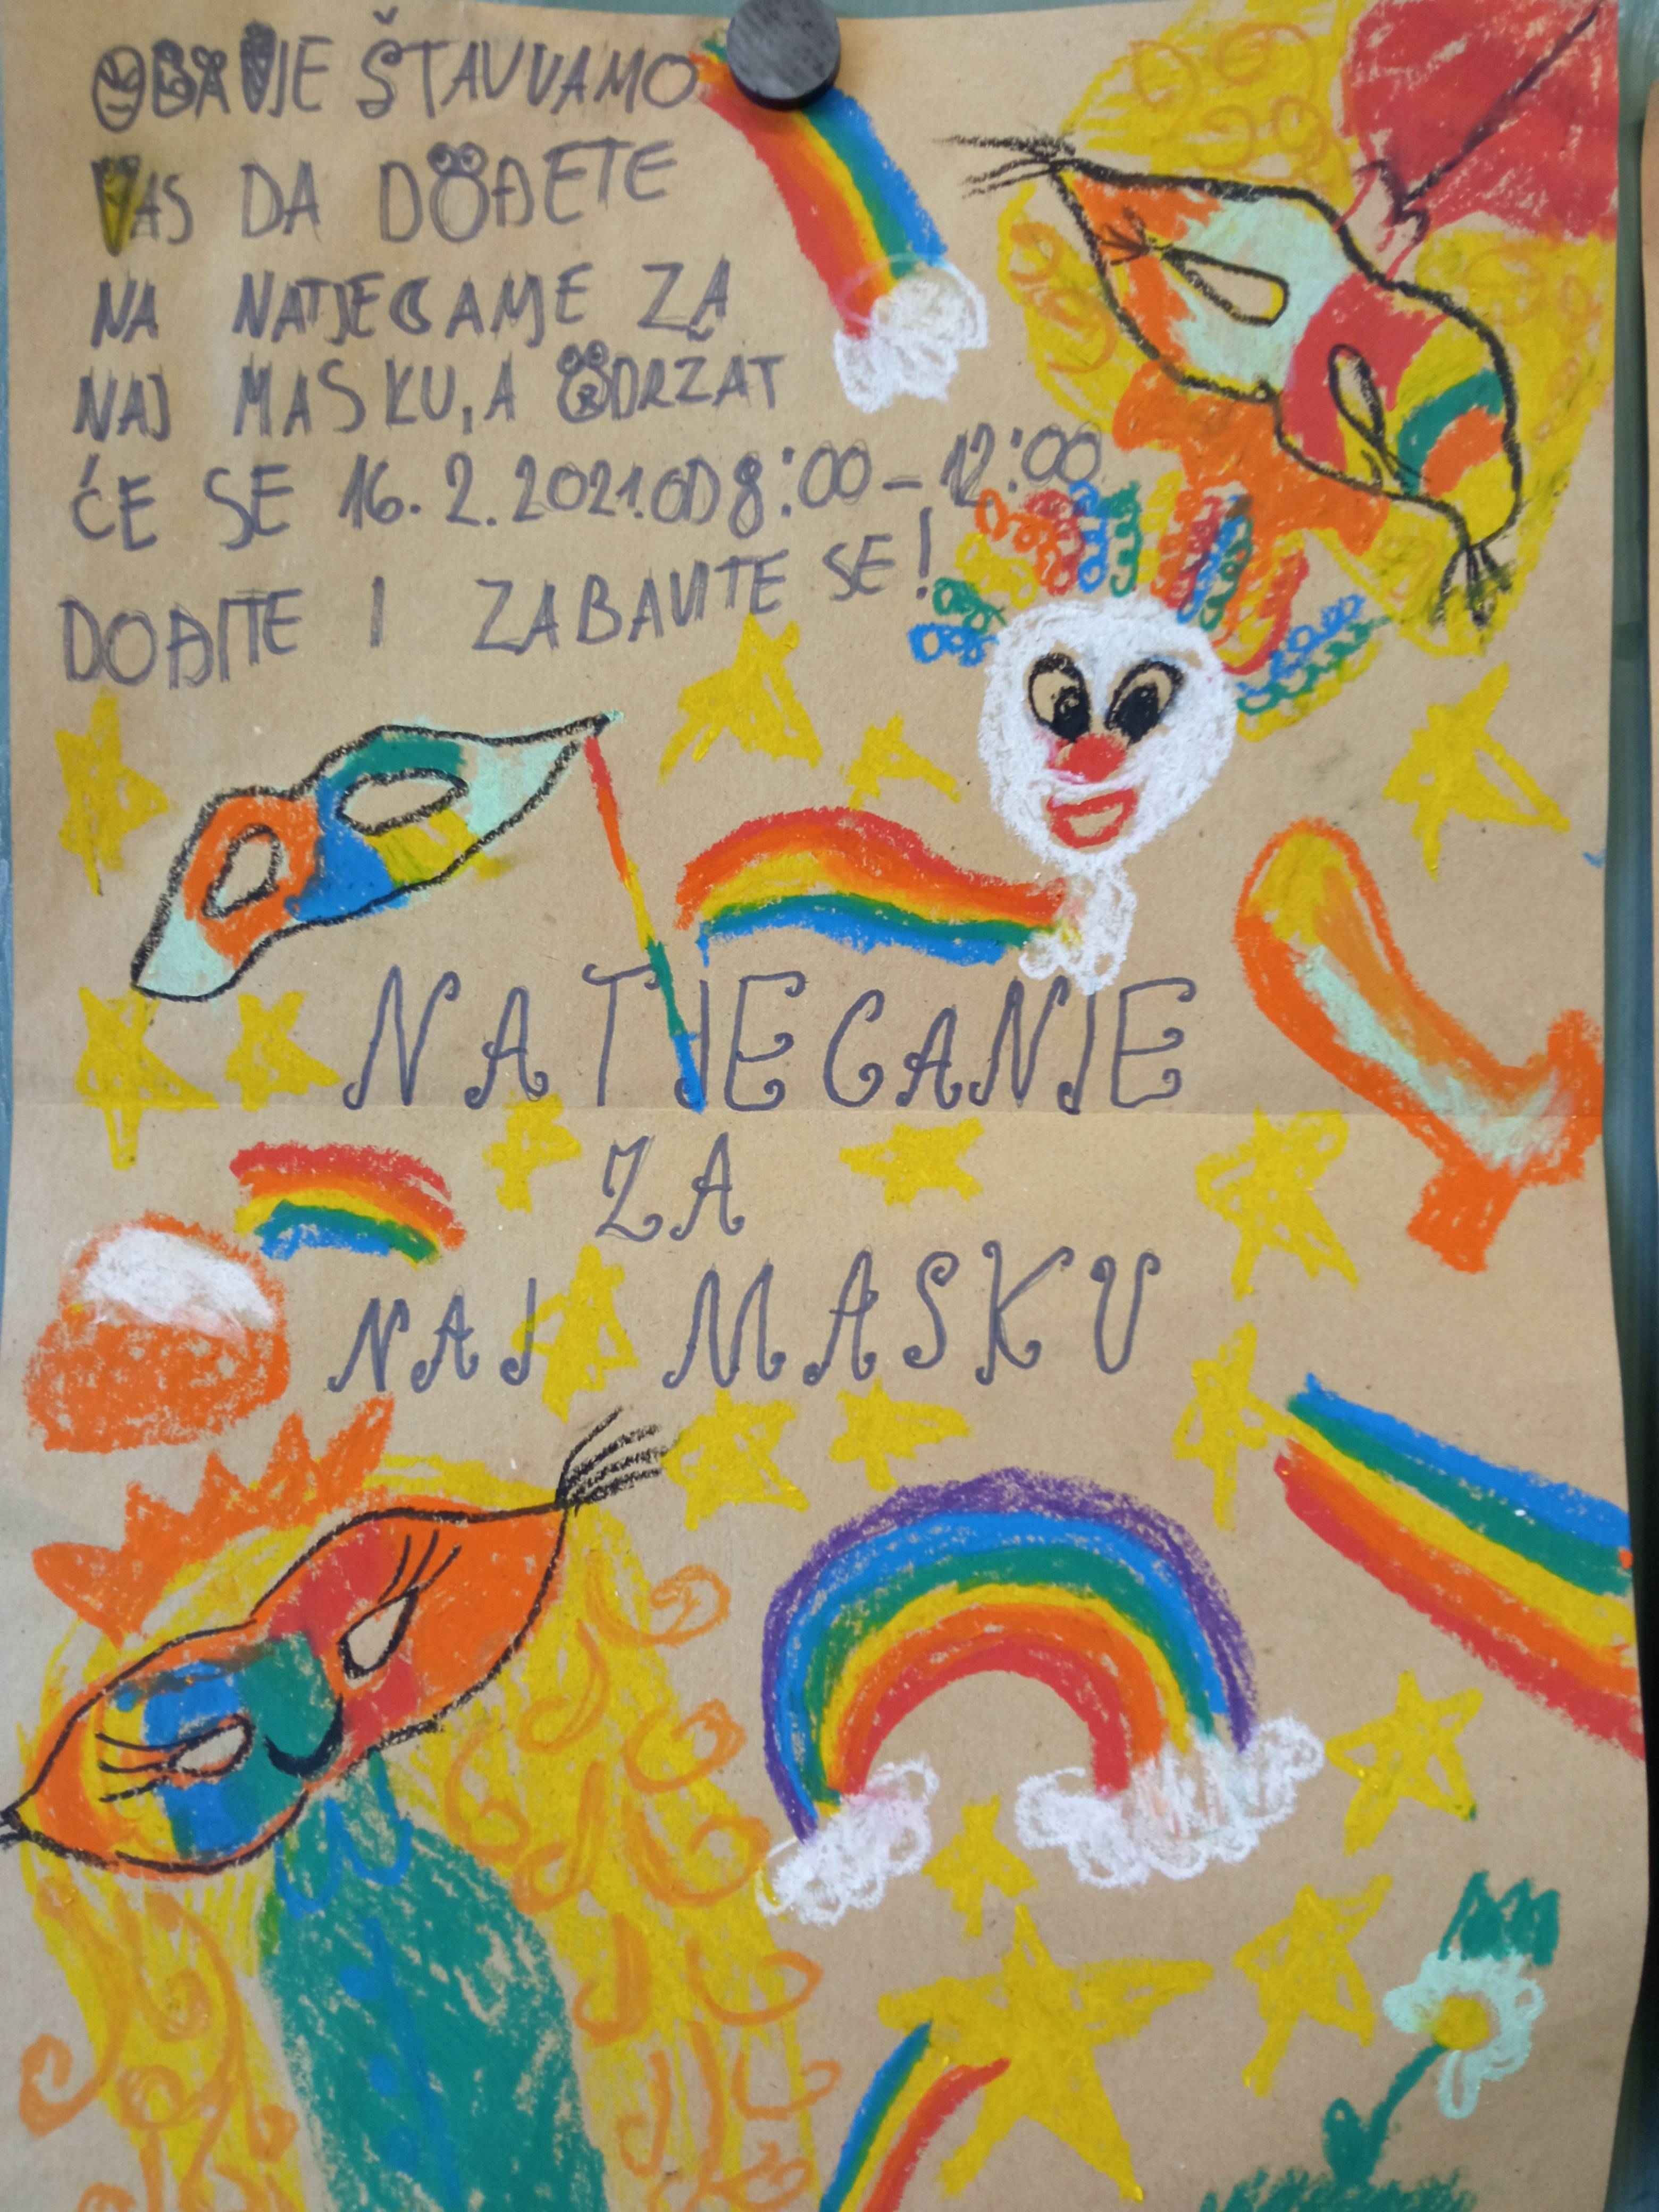 OBAVJEŠTAVVAMO
VAS DA DOĐETE
NA NATJECANJE ZA
NAJ MASKU, A ODRZAT
ĆE SE 16.2.2021. OD 8:00-12:00
DOĐITE I ZABAVITE SE!
NATJECANJE
ZA
NAJ MASKU